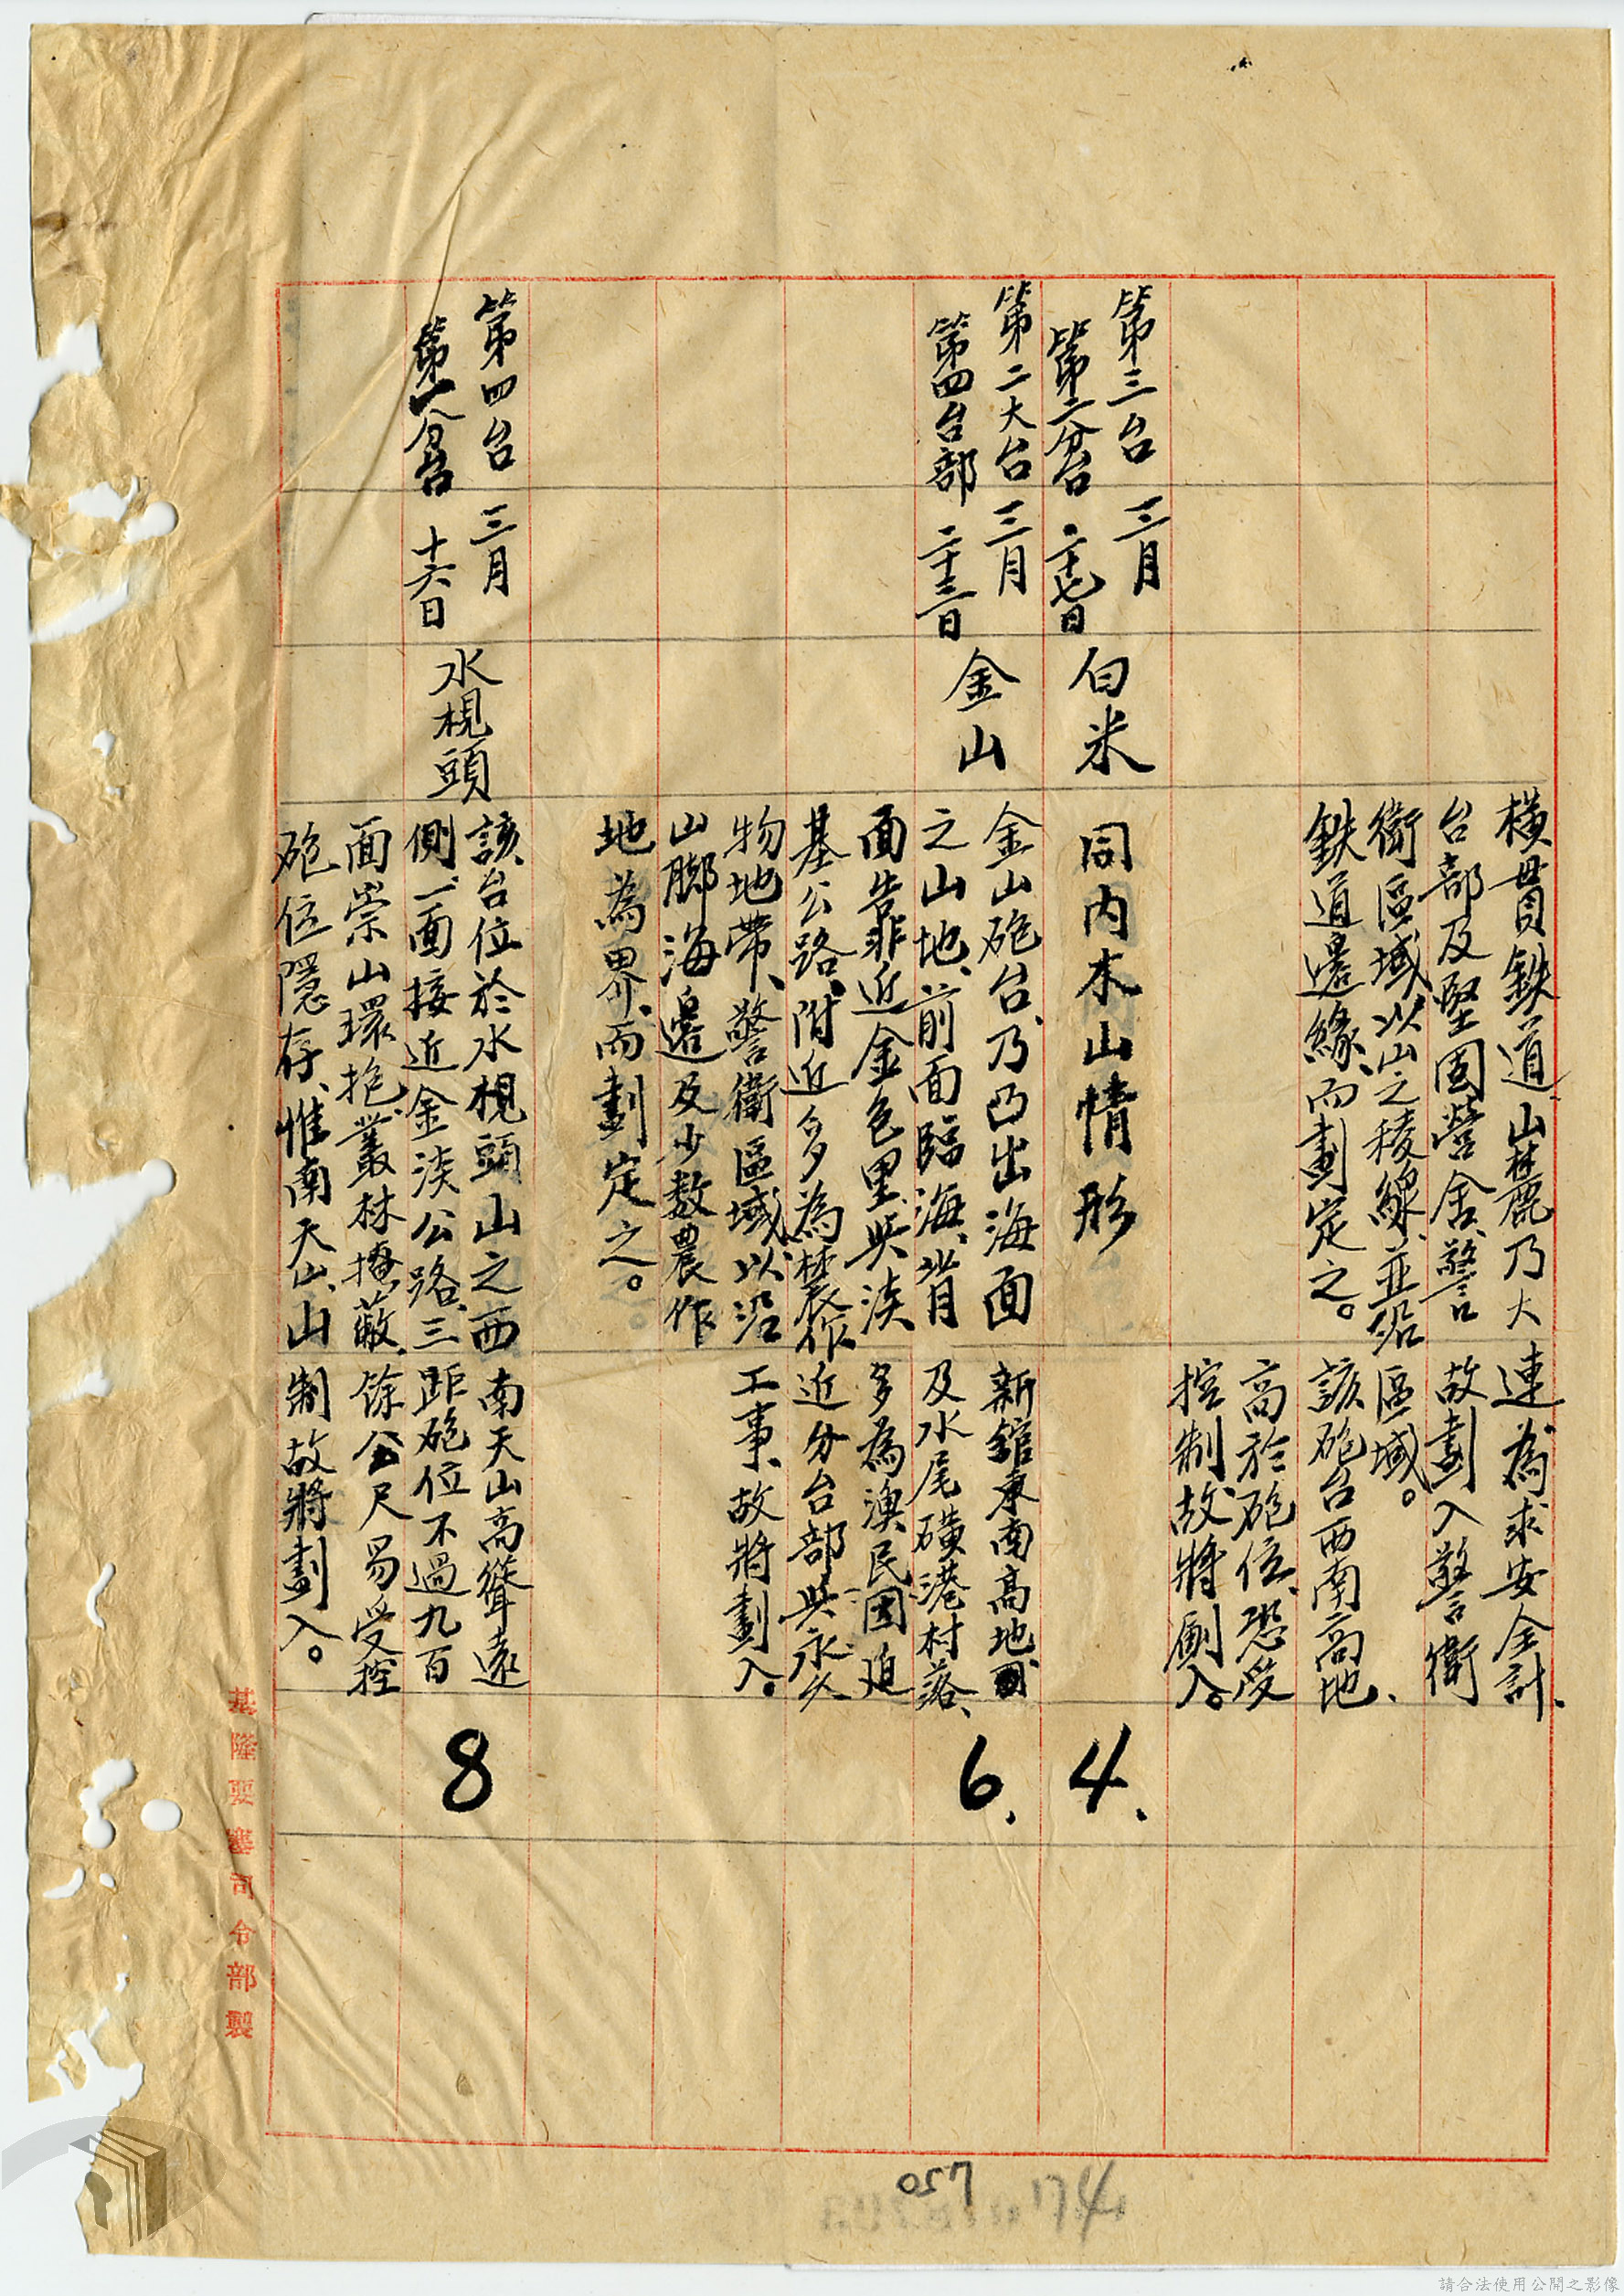 橫貫鉄道、山麓乃大
台部及堅固營舍、警
衛區域以山之稜線、並沿
鉄道邊緣、而劃定之。
連為求安全計、
故劃入警衛
區域。
該砲台西南高地、
高於砲位、恐受
控制故將劃入。
第三台
第二分台
三月
二十七日
白米
同內木山情形
4、
第二大台
第四台部
三月
二十三日
金山
金山砲台、乃凸出海面
之山地、前面臨海、背
面靠近金色里、與淡
基公路、附近多為農作
物地帶、警衛區域、以沿
山腳海邊及少數農作
地為界、而劃定之。
新館東南高地
及水尾磺港村落、
多為漁民、因迫
近分台部與永久
工事、故將劃入。
6、
第四台
第一分台
三月
十六日
水梘頭
該台位於水梘頭山之西
側、一面接近金淡公路、三
面崇山環抱、叢林掩蔽、
砲位隱存、惟南天山、山
南天山高聳遠
距砲位不過九百
餘公尺易受控
制故將劃入。
8
基隆要塞司令部製
057
174
請合法使用公開之影像